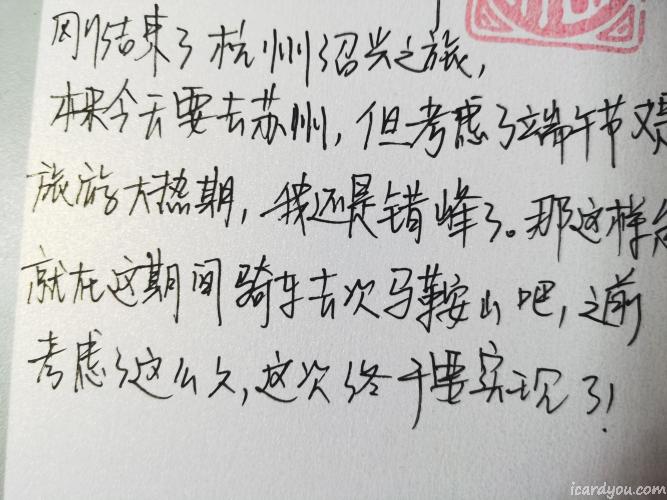 刚结束了杭州绍兴之旅，
本来今天要去苏州，但考虑了端午节
旅游大热期，我还是错峰了。那这样
就在这期间骑车去次马鞍山吧，之前
考虑了这么久，这次终于要实现了！
icardyou.com